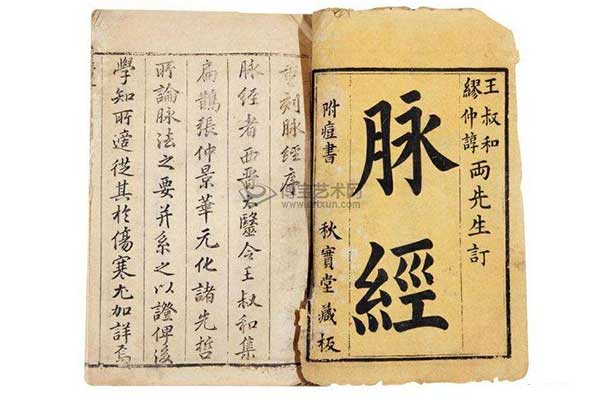 王叔和
繆仲諄
両先生訂
脉經
附痘書 秋實堂藏板
重刻脉經序
脉經者西晋太醫令王叔和集
扁鵲張仲景華元化諸先哲
所論脉法之要并系之以證俾後
學知所適從其於傷寒尤加詳焉
得宝艺术网
artxun.com